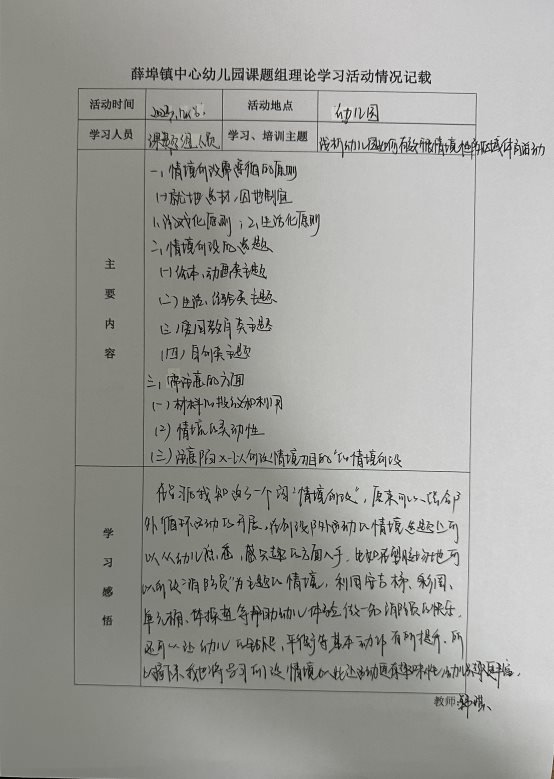 薛埠镇中心幼儿园课题组理论学习活动情况记载
活动时间 活动地点 幼儿园
学习人员 课题组人员 学习、培训主题 浅析幼儿园如何有效根情境性的区域体育活动
主要内容
一、情境创设需遵循的原则
(一)就地选材,因地制宜
1、游戏化原则;2、生活化原则
二、情境创设的选题
(一)绘本、动画类主题
(二)生活、经验类主题
(三)爱国教育类主题
(四)自创类主题
三、需注意的方面
(一)材料的投放和利用
(2)情境的灵动性
(三)注意防"以创设情境为目的"的情境创设
学习感悟
使我知道了一个词"情境创设",原来可以结合户
外循环运动的开展,在创设户外运动的情境选题上可
以从幼儿熟悉、感兴趣的方面入手,比如在塑胶场地可
以创设"消防员"为主题的情境,利用安吉梯、轮胎、
单元桶、体操垫等帮助幼儿体验做一名消防员的快乐,
还可以让幼儿的钻爬、平衡等基本动作有所提升。所
以接下来我也将学习创设情境 让运动更有趣味性
教师: